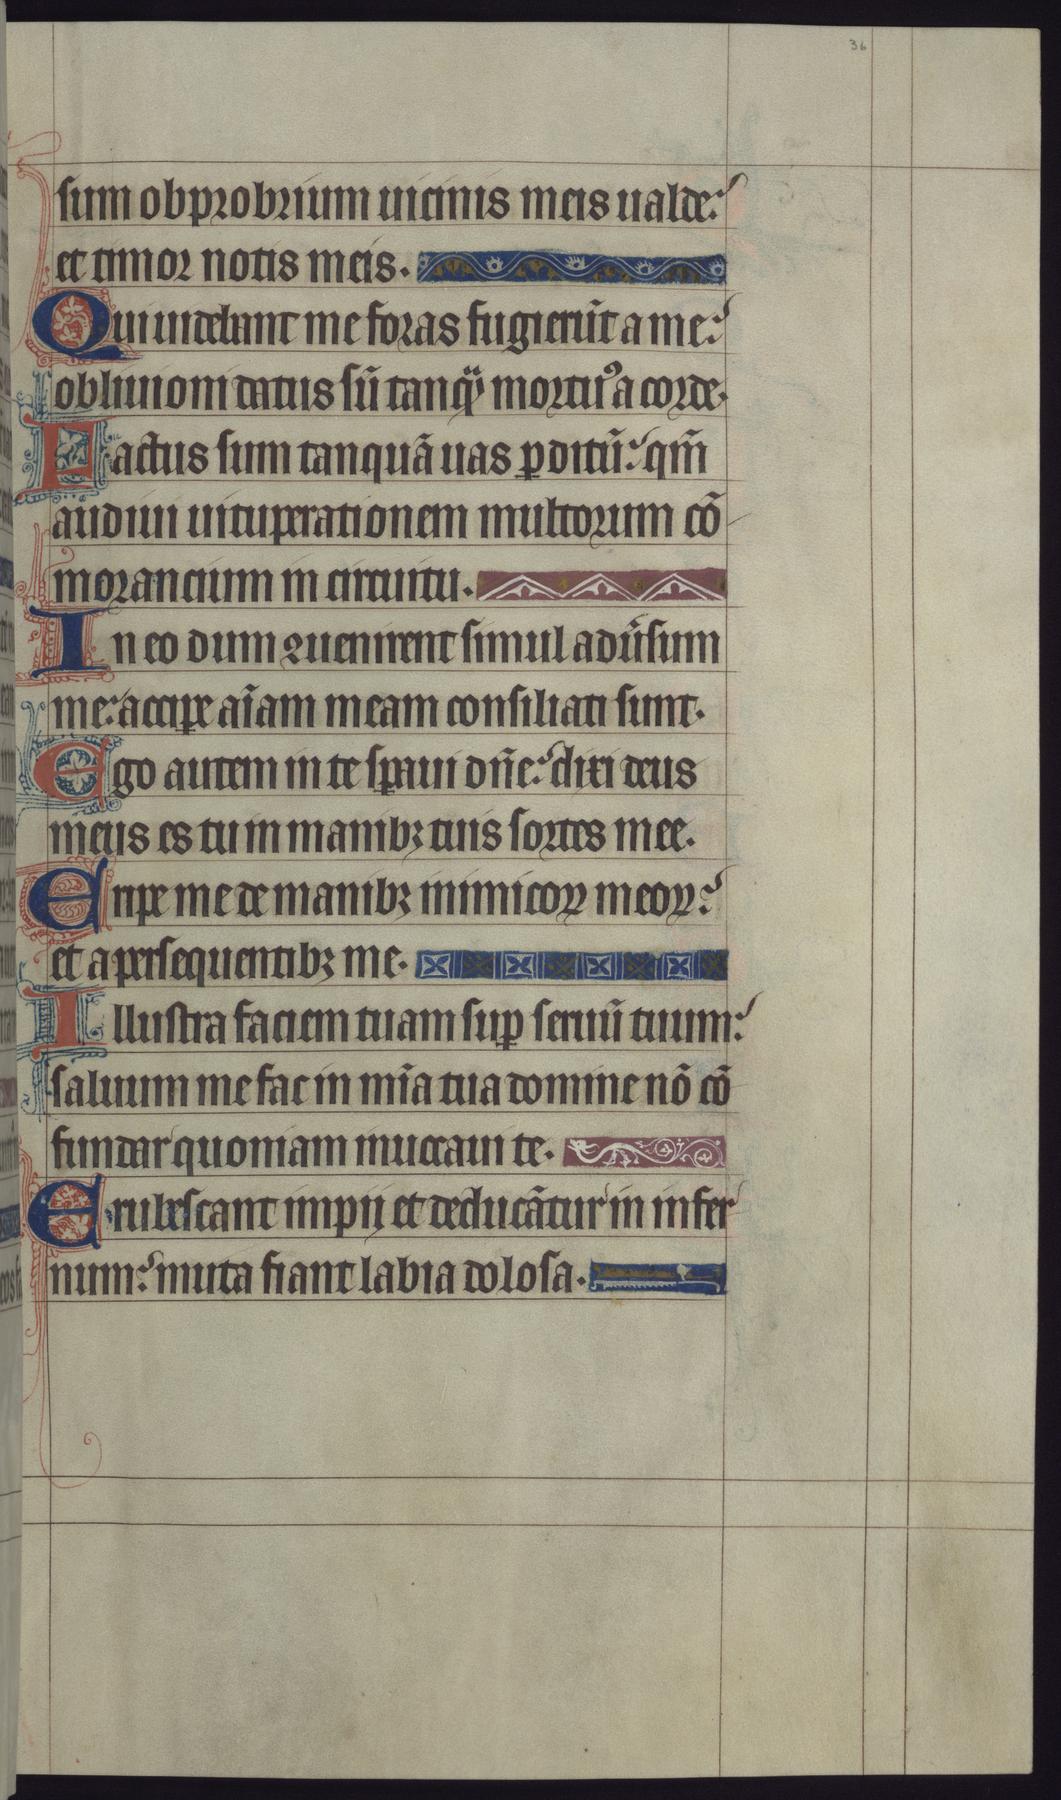 36
sum obprobrium uicinis meis ualde:
et timor notis meis.
Qui uidebant me foras fugierūt a me:
obliuioni datus sū tanqꝫ mortuꝰ a corde.
Factus sum tanquā uas ꝑditū: qm̄
audiui uituperationem multorum cō
morancium in circuitu.
In eo dum ꝯuenirent simul adūsum
me: acciꝑe aīam meam consiliati sunt.
Ego autem in te sꝑaui dn̄e: dixi deus
meus es tu in manibꝫ tuis sortes mee.
Eripe me de manibꝫ inimicoꝝ meoꝝ:
et a persequentibꝫ me.
Illustra faciem tuam suꝑ seruū tuum:
saluum me fac in mīa tua domine nō cō
fundar quoniam inuocaui te.
Erubescant impij et deducātur in infer
num: muta fiant labia dolosa.